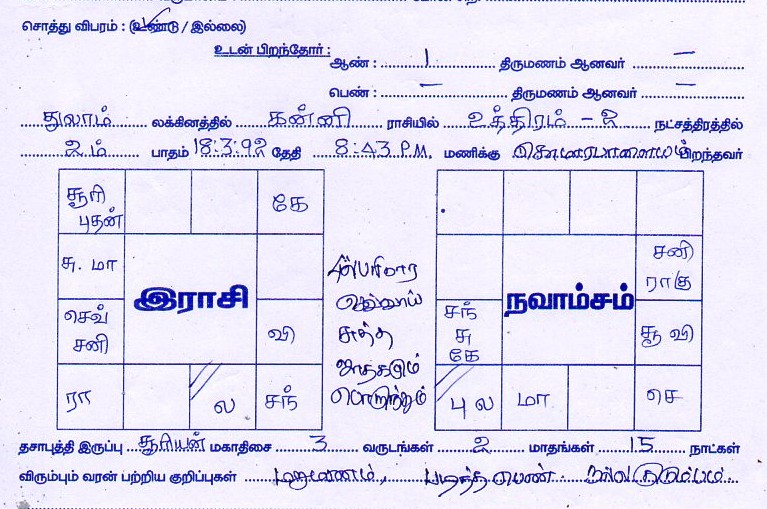 சொத்து விபரம் : (உண்டு / இல்லை)
உடன் பிறந்தோர் :
ஆண் : 1 திருமணம் ஆனவர் —
பெண் : — திருமணம் ஆனவர் —
துலாம் லக்கினத்தில் கன்னி ராசியில் உத்திரம் - 2 நட்சத்திரத்தில்
2ம் பாதம் 18:3:92 தேதி 8:43 P.M. மணிக்கு பிறந்தவர்
சூரி
புதன்
கே
சு. மா
செவ்
சனி
வி
ரா
ல
சந்
இராசி
செவ்வாய்
சுத்த
ஜாதகமும்
பொறுந்தும்
சனி
ராகு
சந்
சு
கே
சூ வி
பு ல
மா
செ
நவாம்சம்
தசாபுத்தி இருப்பு சூரியன் மகாதிசை 3 வருடங்கள் 2 மாதங்கள் 15 நாட்கள்
விரும்பும் வரன் பற்றிய குறிப்புகள் மறுமணம், படித்த பெண் நல்ல குடும்பம்